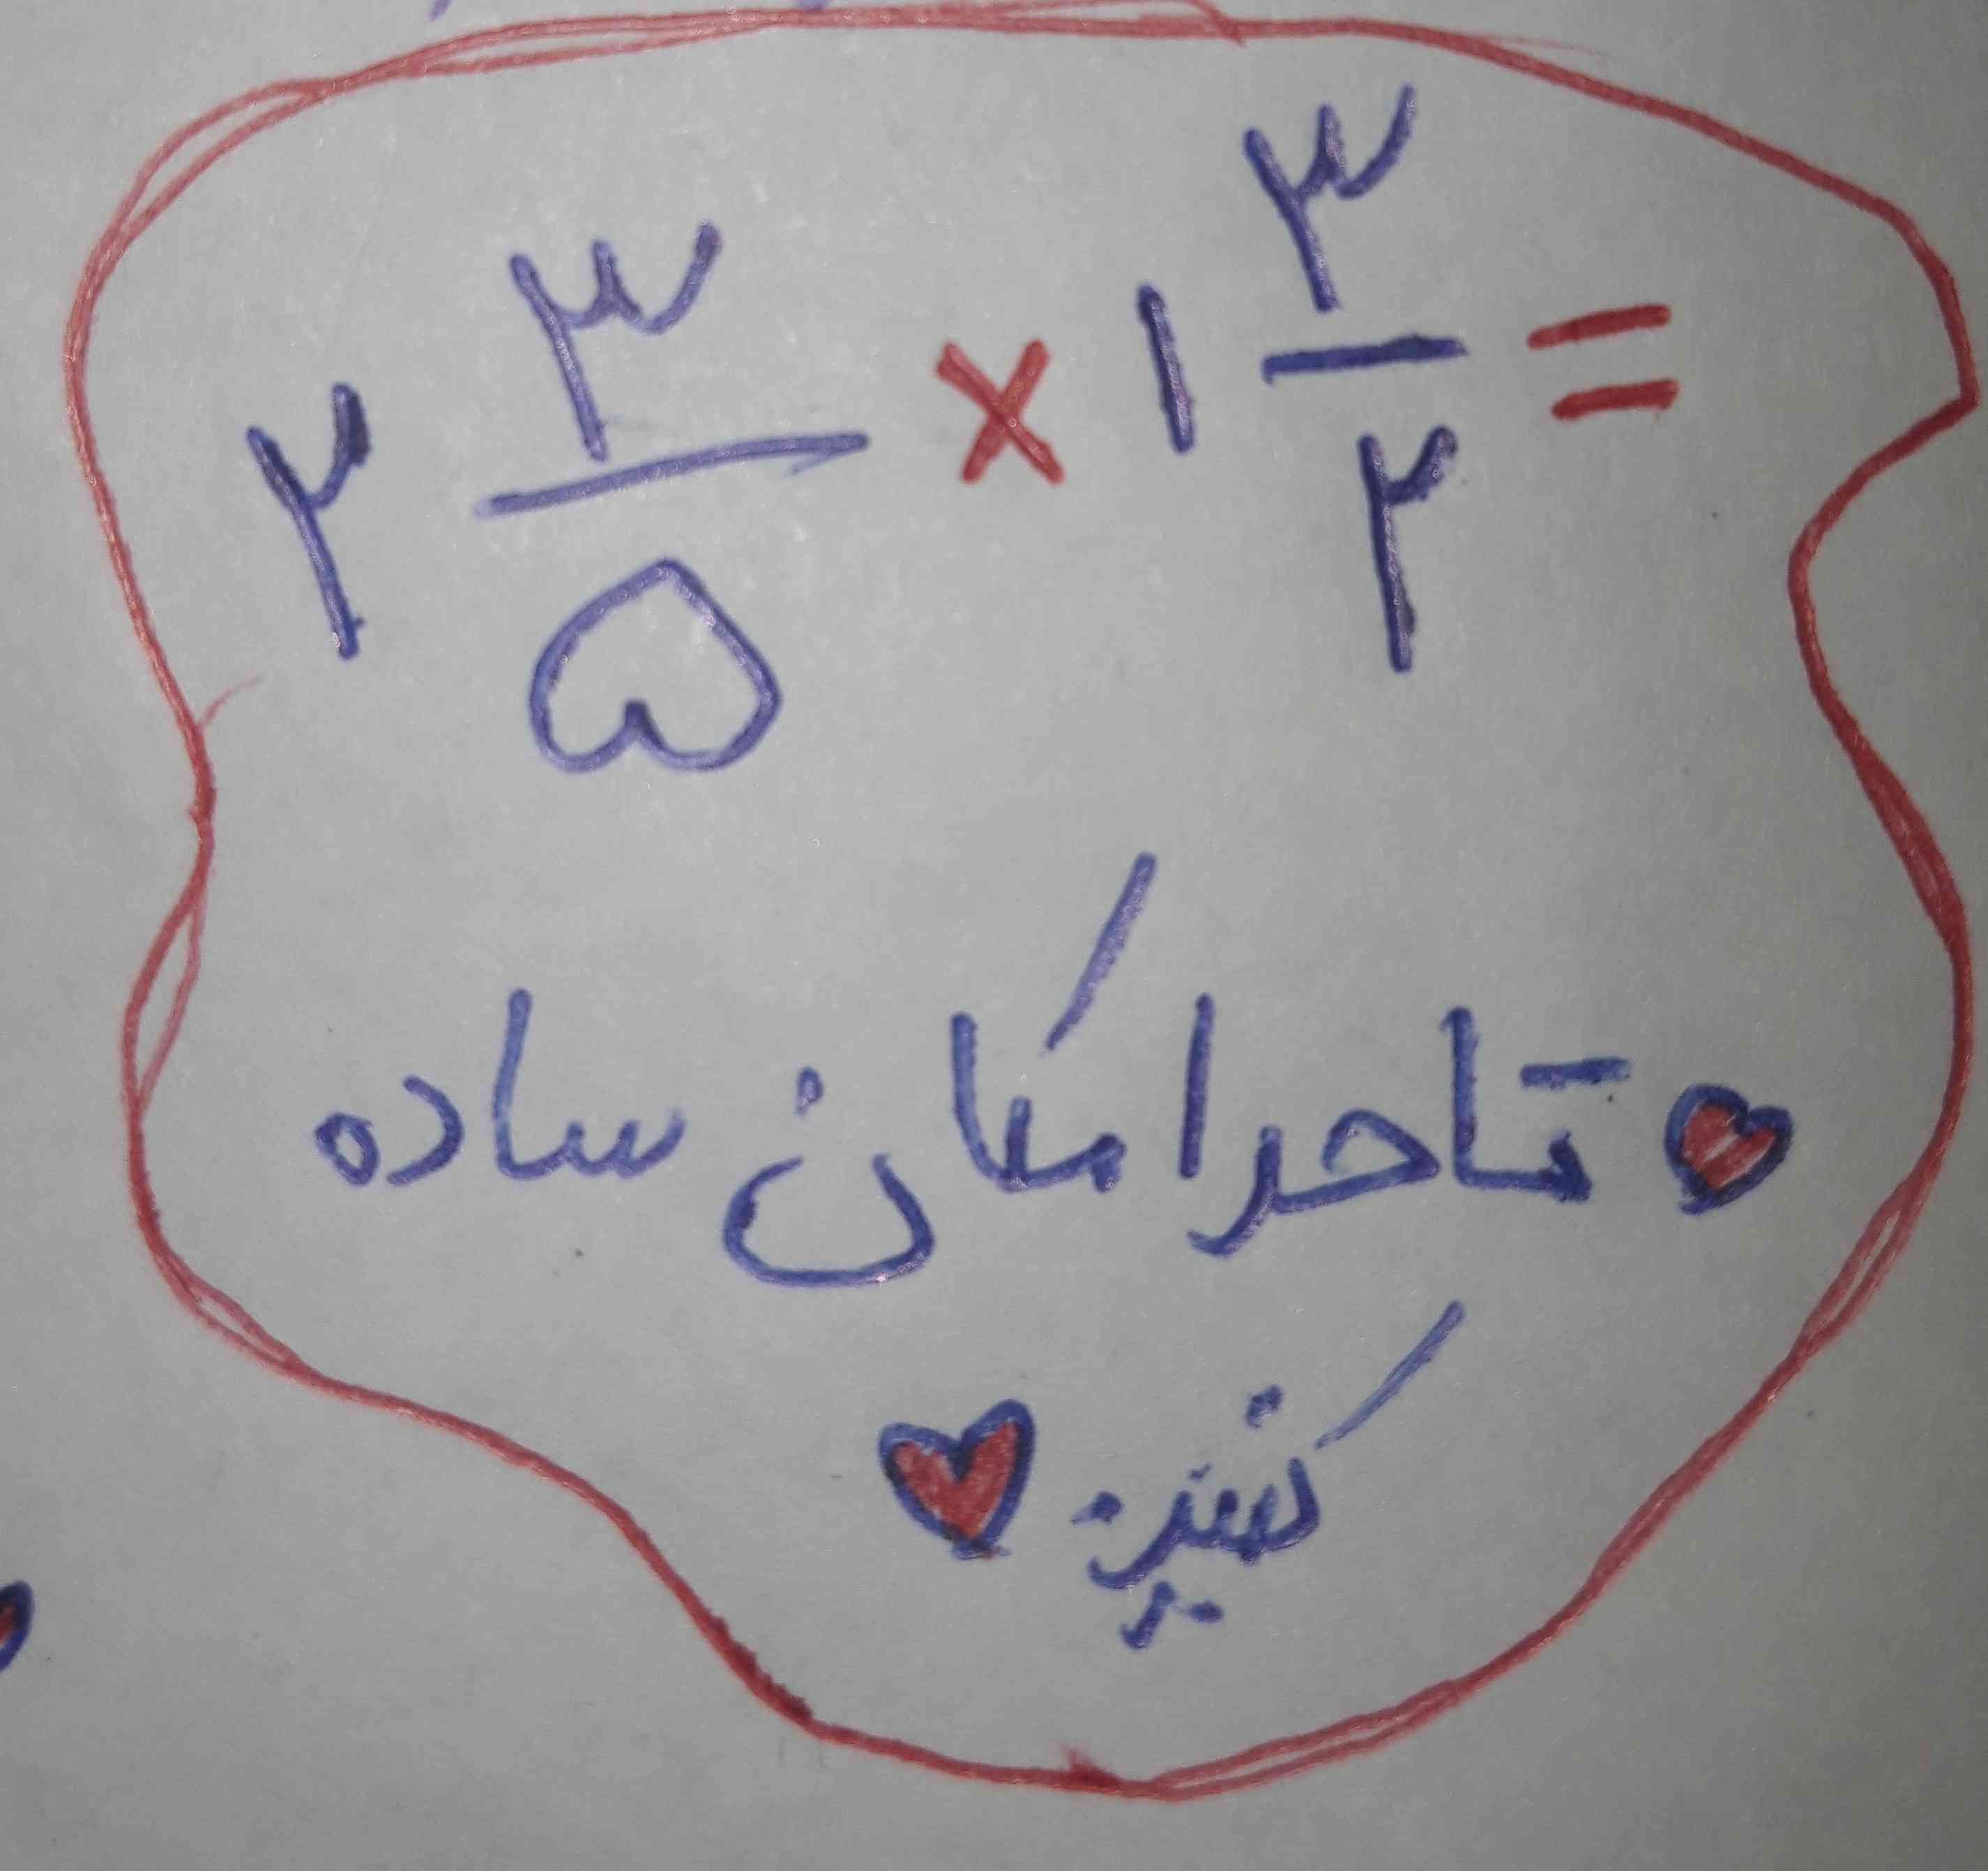 ۲ ۳/۵ × ۱ ۳/۲ =
تا حد امکان ساده
کنید